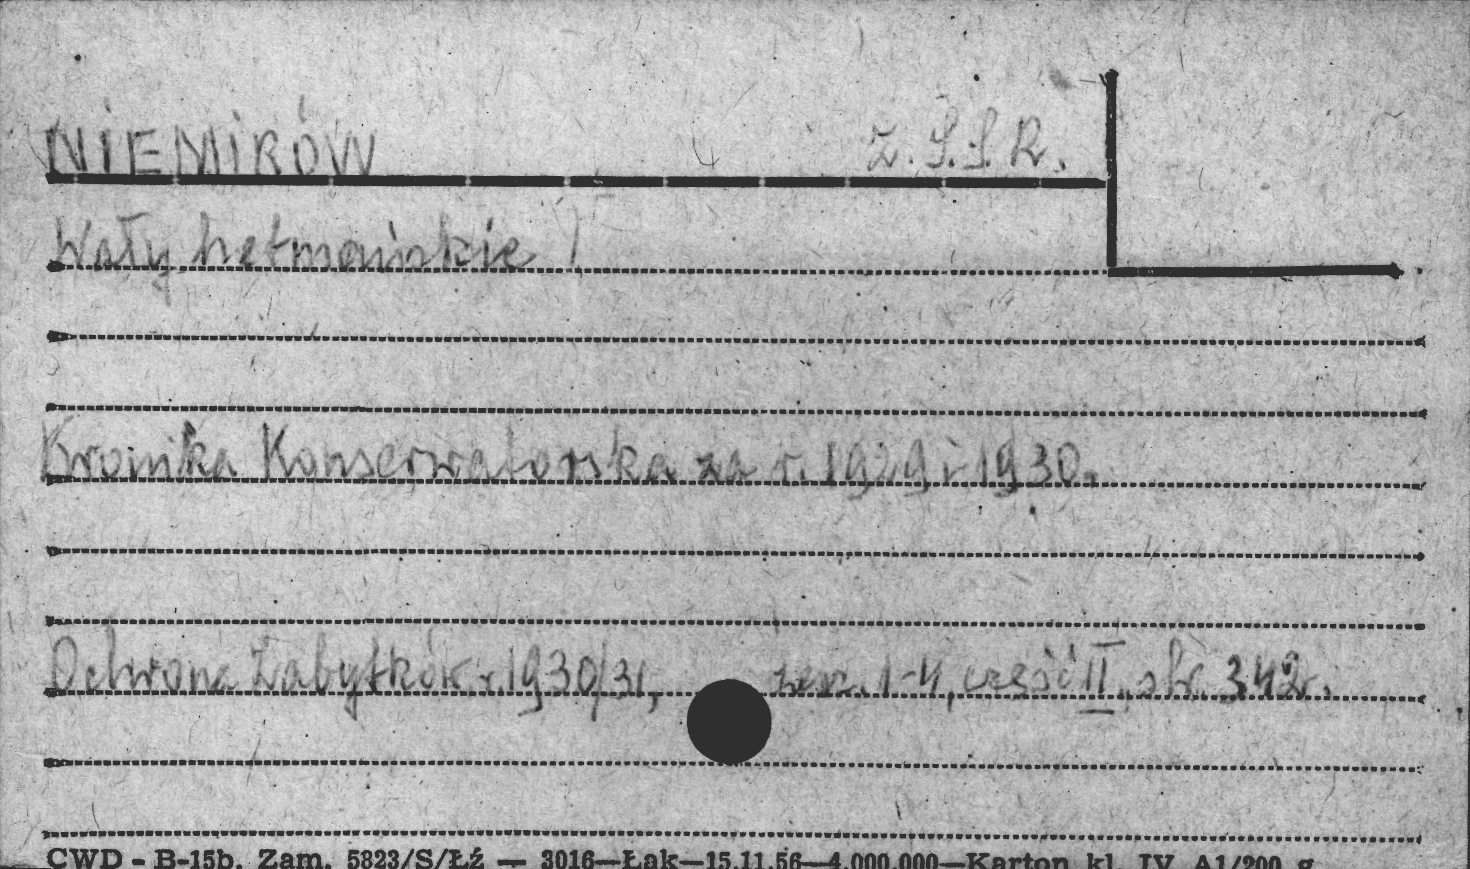 NIEMIRÓW Z.S.S.R.
Wały hetmańskie
Kronika Konserwatorska za r. 1929 i 1930.
Ochrona Zabytków r. 1930/31, zesz. 1-4, część II, str. 342.
CWD - B-15b. Zam. 5823/S/Łź — 3016—Łak—15.11.56—4.000.000—Karton kl. IV A1/200 g